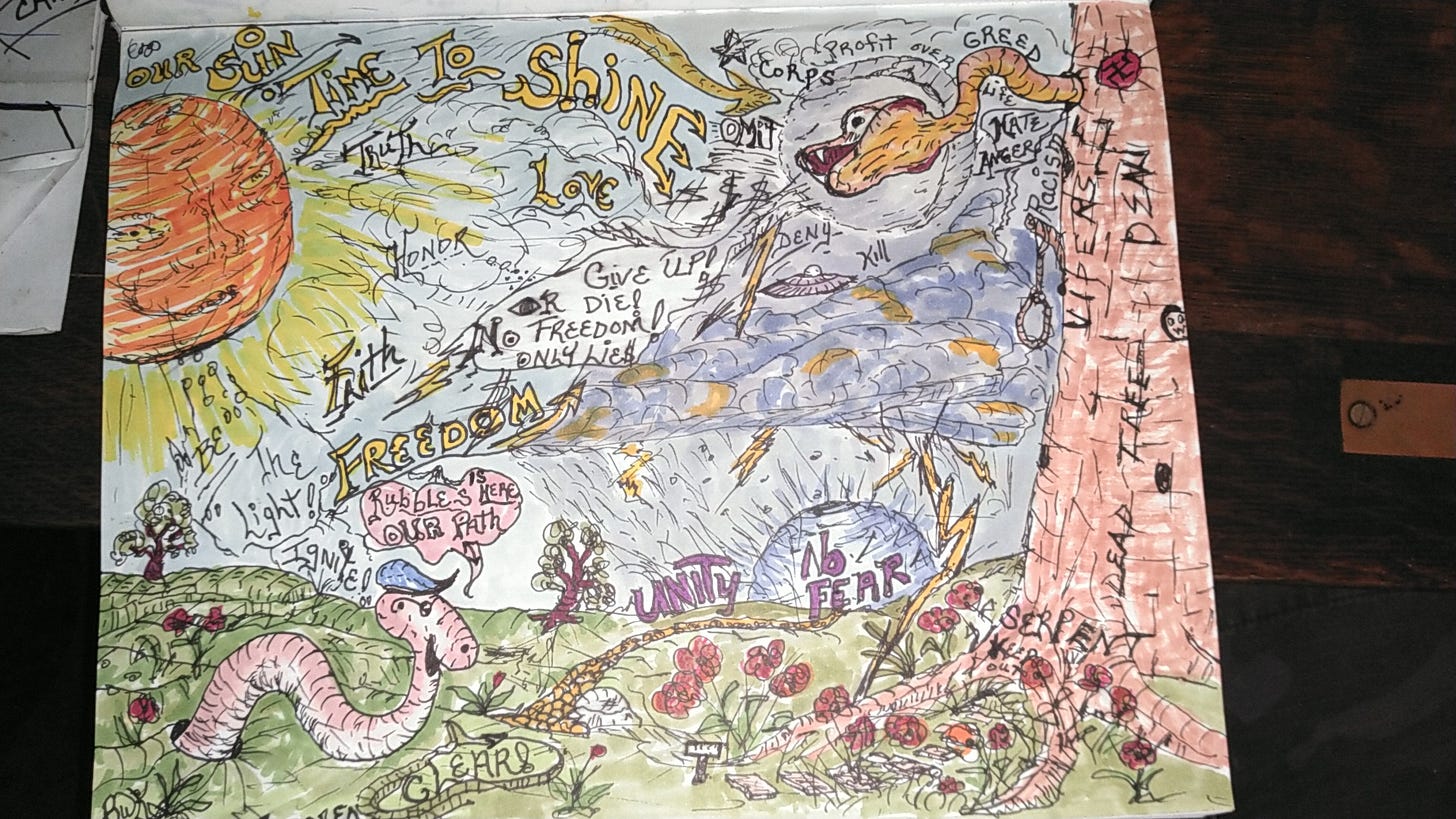 OUR SUN
TIME TO SHINE
TRUTH
LOVE
HONOR
FAITH
FREEDOM
CORPS
PROFIT OVER
LIFE
GREED
OMIT
HATE
ANGER
RACISM
$ $ $
DENY
Kill
GIVE UP!
OR DIE!
NO FREEDOM!
ONLY LIE$
VIPENS
DEN
DEAD TREE
BE
The
Light!
IGNITE!
Rubbles
IS HERE
OUR PATH
UNITY
No
FEAR
SERPEN
KEEP
OUT
CLEARS